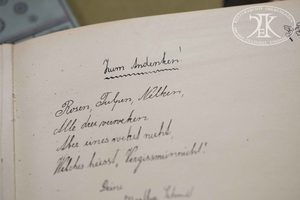 Zum Andenken!
Rosen, Tulpen, Nelken,
Alle drei verwelken
Aber eines welkt nicht,
Welches heisst, Vergissmeinnicht!
Deine